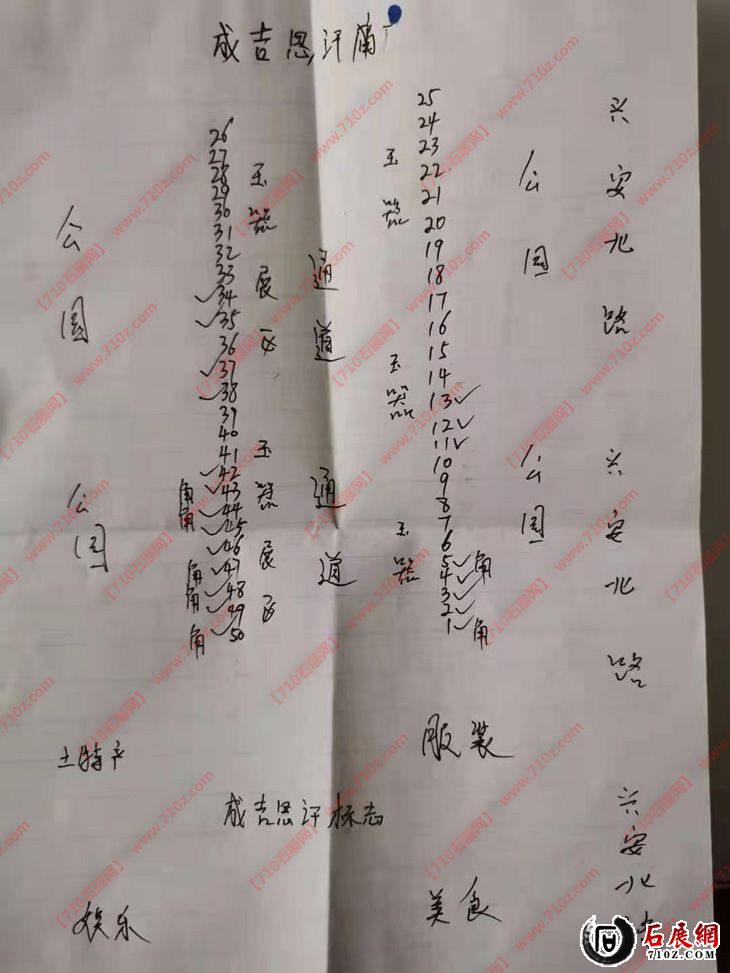 成吉思汗庙
公园
公园
26
27
28
29
30
31
32
33
✓34
✓35
36
✓37
✓38
39
40
41
✓42
角✓43
角✓44
✓45
✓46
角✓47
角✓48
✓49
角✓50
玉器展区
玉器展区
通道
通道
玉器
玉器
玉器
25
24
23
22
21
20
19
18
17
16
15
14
13✓
12✓
11✓
10
9
8
7
6
5✓角
4✓
3✓
2✓
1✓角
公园
公园
兴安北路
兴安北路
兴安北
土特产
服装
成吉思汗标志
娱乐
美食
【710石展网】www.710z.com
石展網
710Z.COM